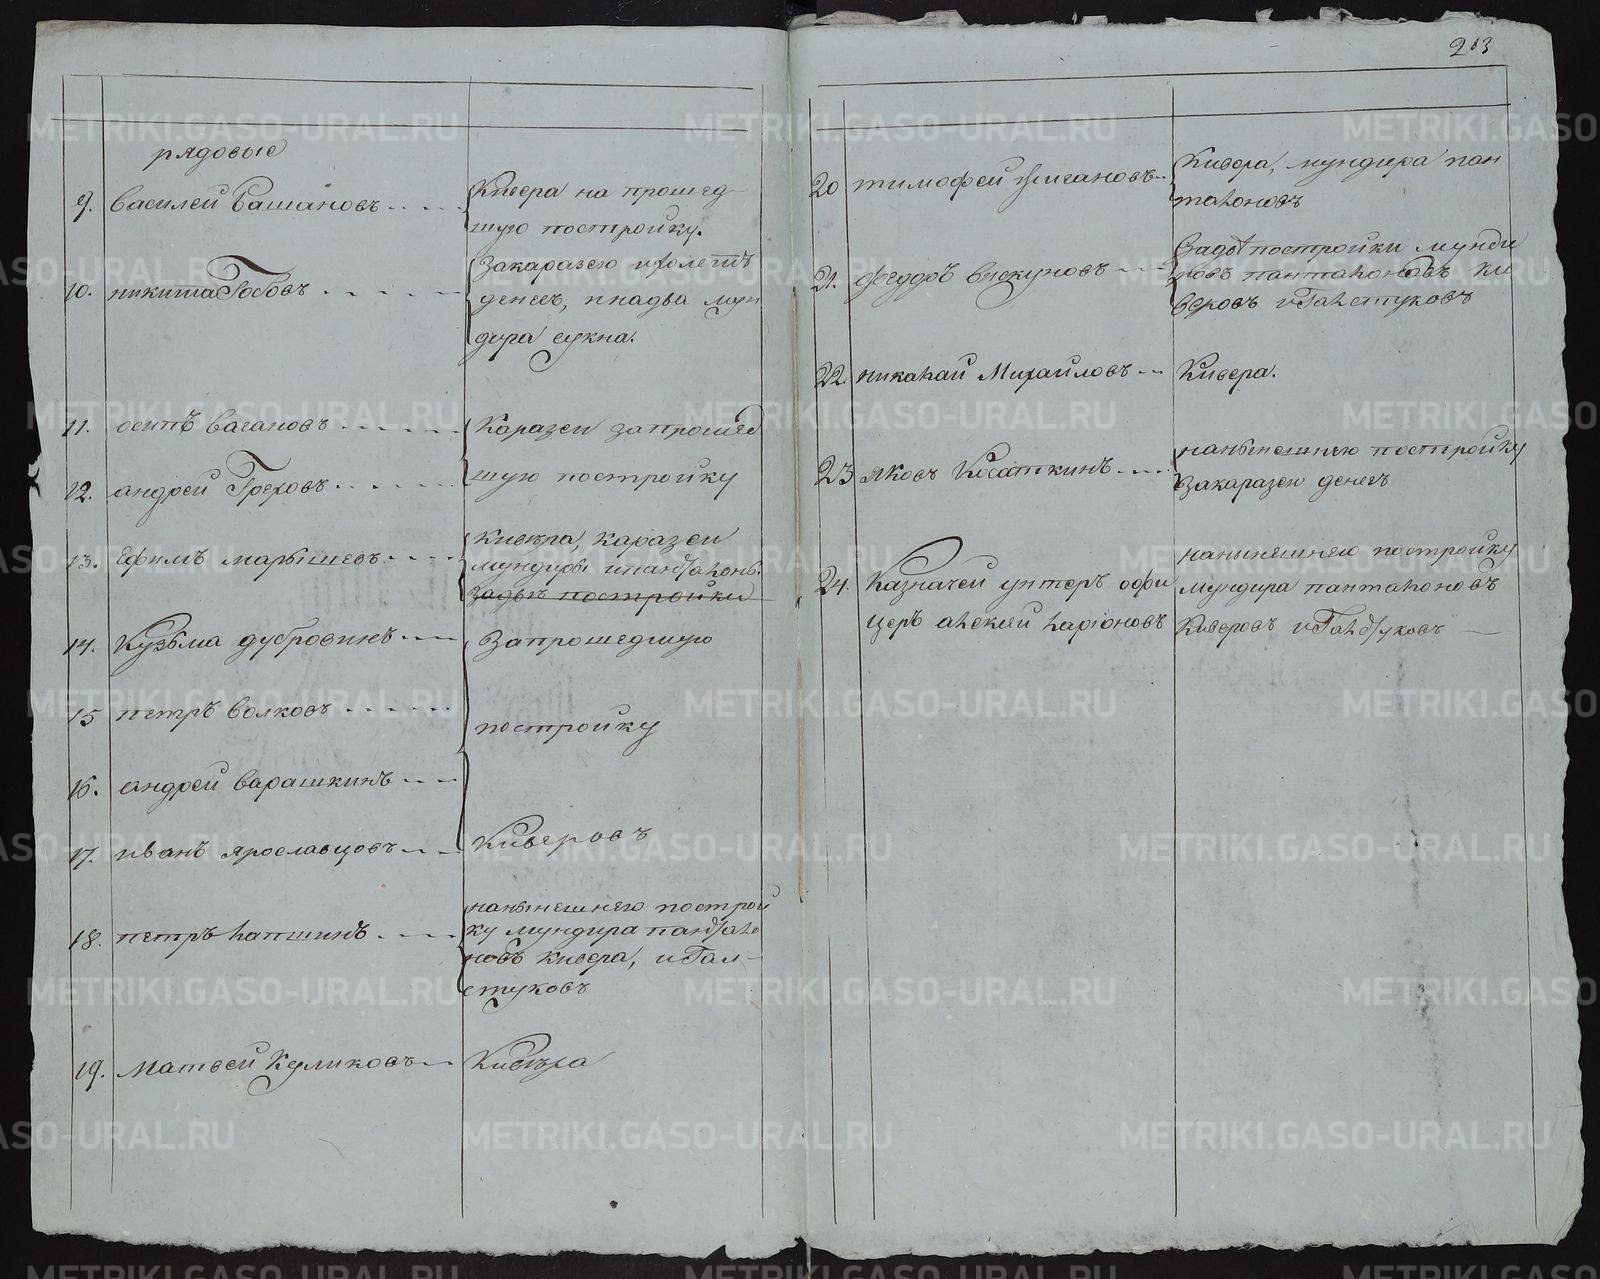 213
рядовые
9. василей Башановъ
Кивера на прошед
шую постройку.
10. никита Гобовъ
Закаразею
денегъ, инадва мун
дира сукна.
11. осипъ вагановъ
Каразеи запрошед
12. андрей Греховъ
шую постройку
13. Ефимъ марышевъ
Кивѣра, каразеи
мундиры ипанталоны
задвѣ постройки
14. Кузьма дубровинъ
Запрошедшую
15 петръ волковъ
постройку
16. андрей варашкинъ
17. иванъ ярославцовъ
Киверовъ
18. петръ лапшинъ
нанынешнею построй
ку мундира пантало
новъ кивера, игал-
стуковъ
19. Матвей Куликовъ
Кивѣра
20 тимофей цигановъ
Кивера, мундира пан
талоновъ
21. федоръ вискуновъ
Задвѣ постройки мунди
ровъ панталоновъ ки
веровъ игалстуковъ
22. николай Михайловъ
Кивера.
23 яковъ Косаткинъ
нанынешнею постройку
Закаразею денегъ
24. Казначей унтеръ офи
церъ алексей ларионовъ
нанынешнею постройку
мундира панталоновъ
Киверовъ игалстуковъ
METRIKI.GASO-URAL.RU